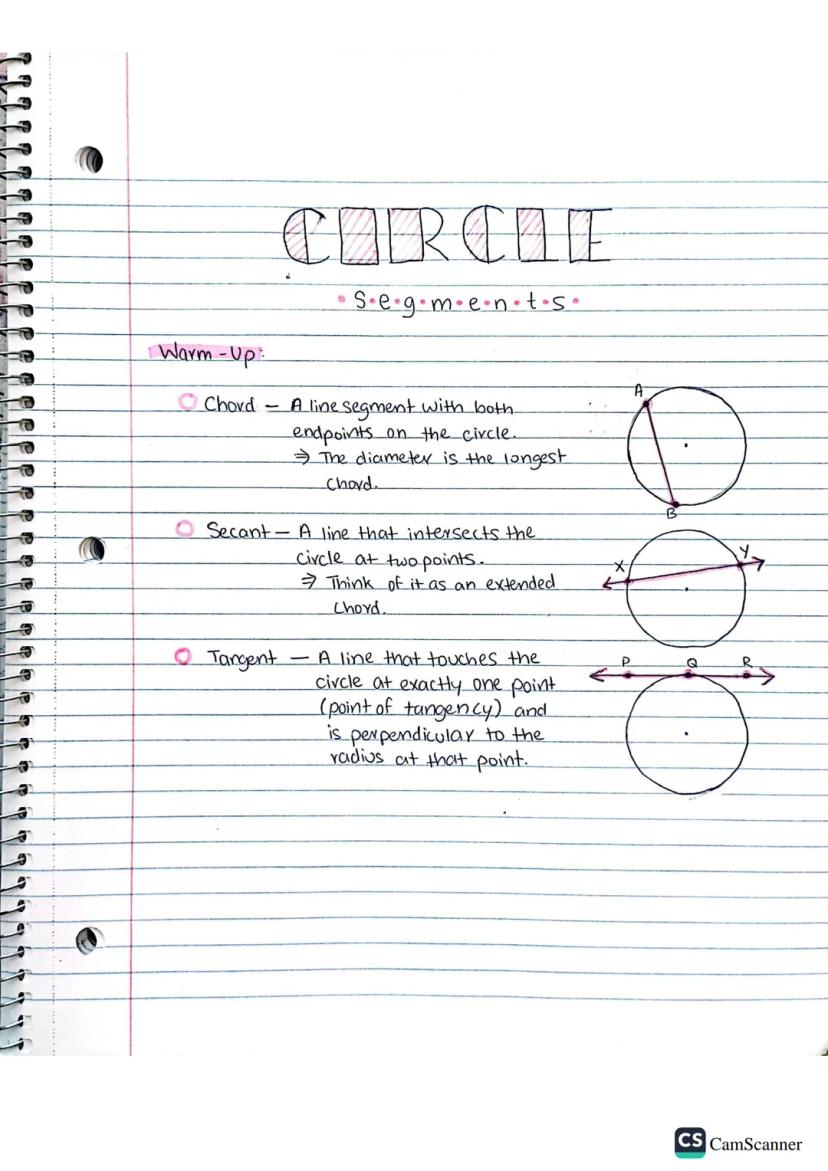 CIRCLE
s.e.g.m.e.n.t.s
Warm-Up:
Chord - A line segment with both
endpoints on the circle.
⇒ The diameter is the longest
chord.
A
B
Secant - A line that intersects the
circle at two points.
⇒ Think of it as an extended
chord.
X
Y
Tangent - A line that touches the
circle at exactly one point
(point of tangency) and
is perpendicular to the
radius at that point.
P Q R
CS CamScanner